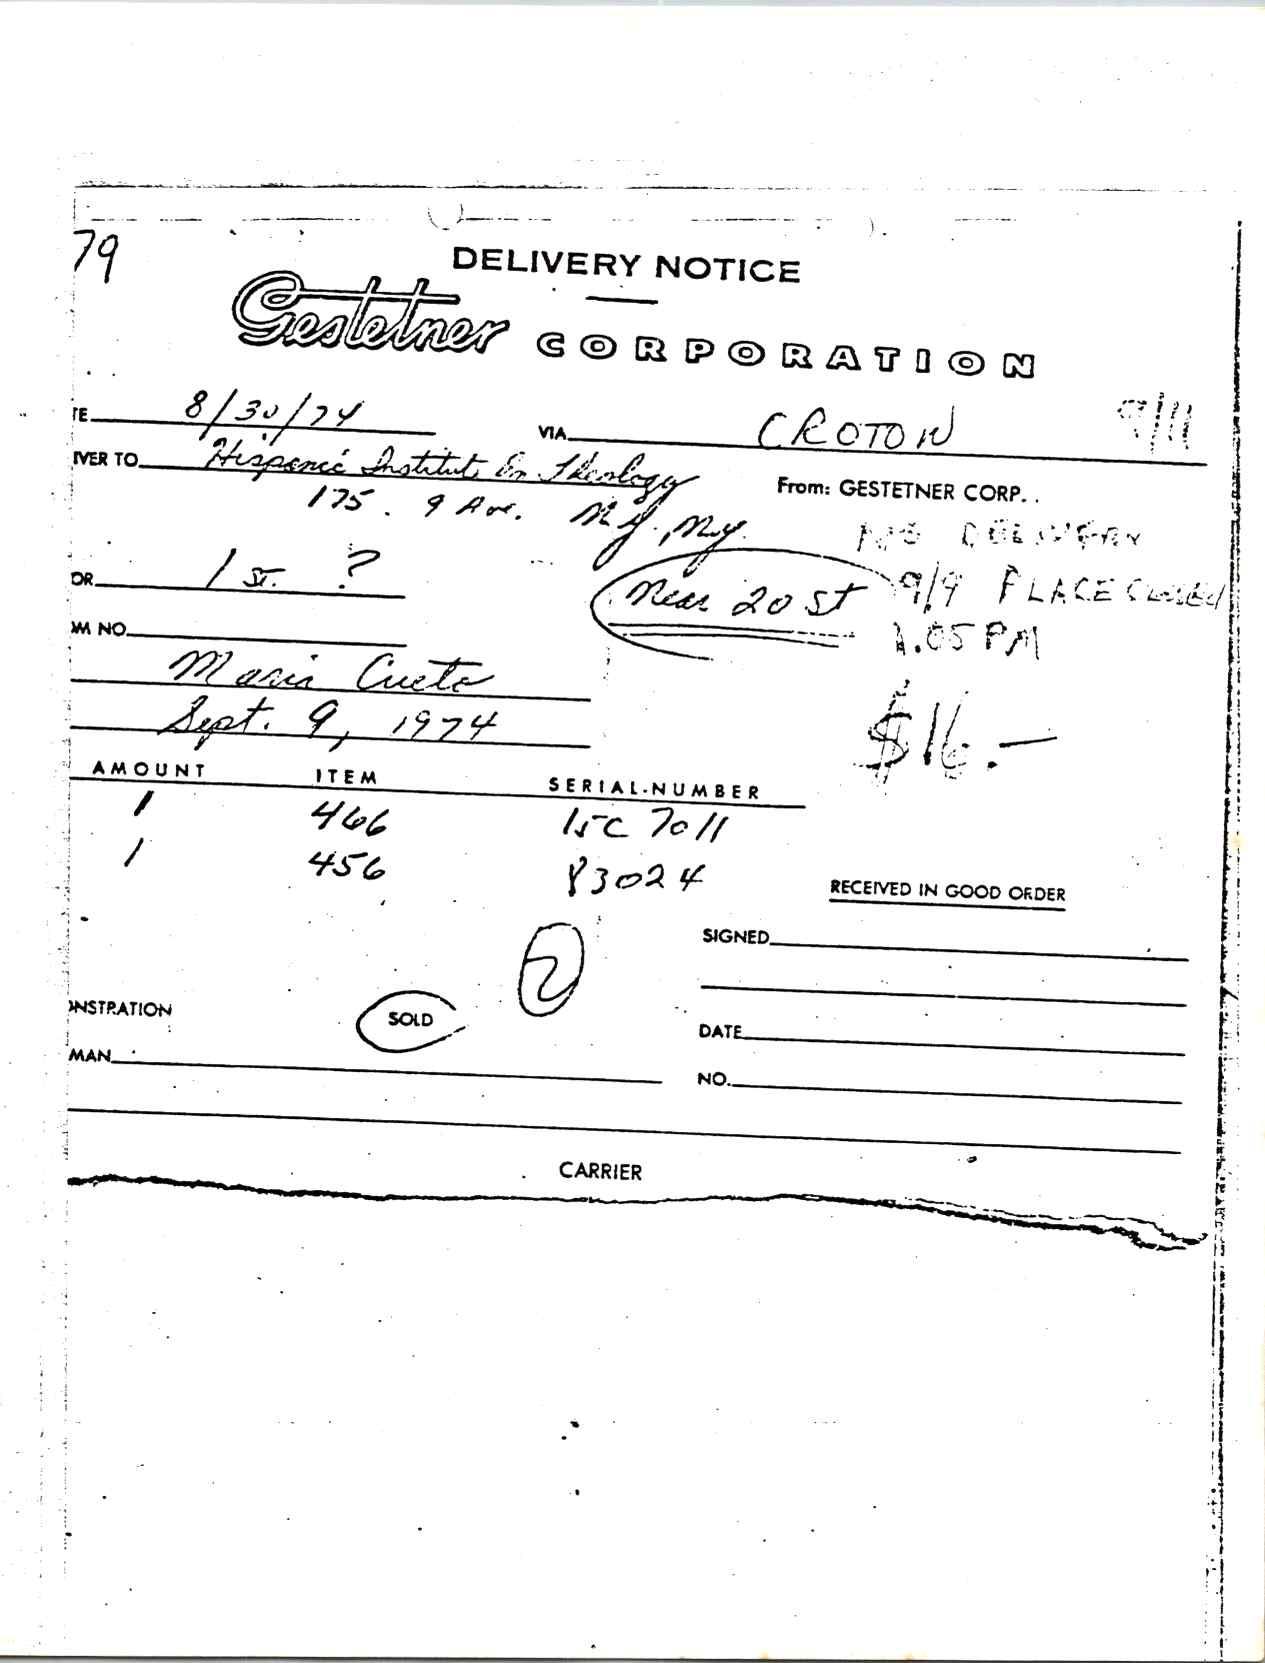 79
DELIVERY NOTICE
Gestetner CORPORATION
TE 8/30/74 VIA CROTON 9/11
IVER TO Hispanic Institute In Theology
From: GESTETNER CORP.
175. 9 Ave. N.Y. N.Y.
NO DELIVERY
OR 1 ST. ?
Near 20 St
9/9 PLACE CLOSED
1.05 PM
OM NO.
Maria Cueto
Sept. 9, 1974
$16.—
AMOUNT ITEM SERIAL-NUMBER
1 466 15C 7011
1 456 83024
RECEIVED IN GOOD ORDER
SIGNED
2
ONSTRATION SOLD
DATE
MAN
NO.
CARRIER